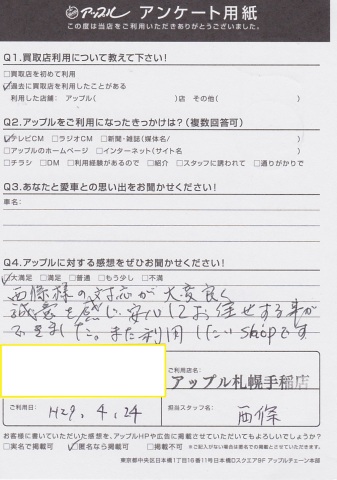 アップル アンケート用紙
この度は当店をご利用いただきありがとうございました。
Q1.買取店利用について教えて下さい!
□買取店を初めて利用
☑過去に買取店を利用したことがある
利用した店舗: アップル( )店 その他( )
Q2.アップルをご利用になったきっかけは?(複数回答可)
☑テレビCM □ラジオCM □新聞・雑誌(媒体名/ )
□アップルのホームページ □インターネット(サイト名 )
□チラシ □DM □利用経験があるので □紹介 □スタッフに誘われて □通りがかりで
Q3.あなたと愛車との思い出をお聞かせください!
車名:
Q4.アップルに対する感想をぜひお聞かせください!
☑大満足 □満足 □普通 □もう少し □不満
西條様の対応が大変良く
誠意を感じ、安心してお任せする事が
できました。また利用したいshopです
ご利用店名:
アップル札幌手稲店
ご利用日: H29.4.24
担当スタッフ名: 西條
お客様に書いていただいた感想を、アップルHPや広告に掲載させていただいてもよろしいでしょうか?
□実名で掲載可 ☑匿名なら掲載可 □掲載不可 ※ご記入がない場合は匿名での掲載とさせていただきます。
東京都中央区日本橋1丁目16番11号日本橋Dスクエア8F アップルチェーン本部